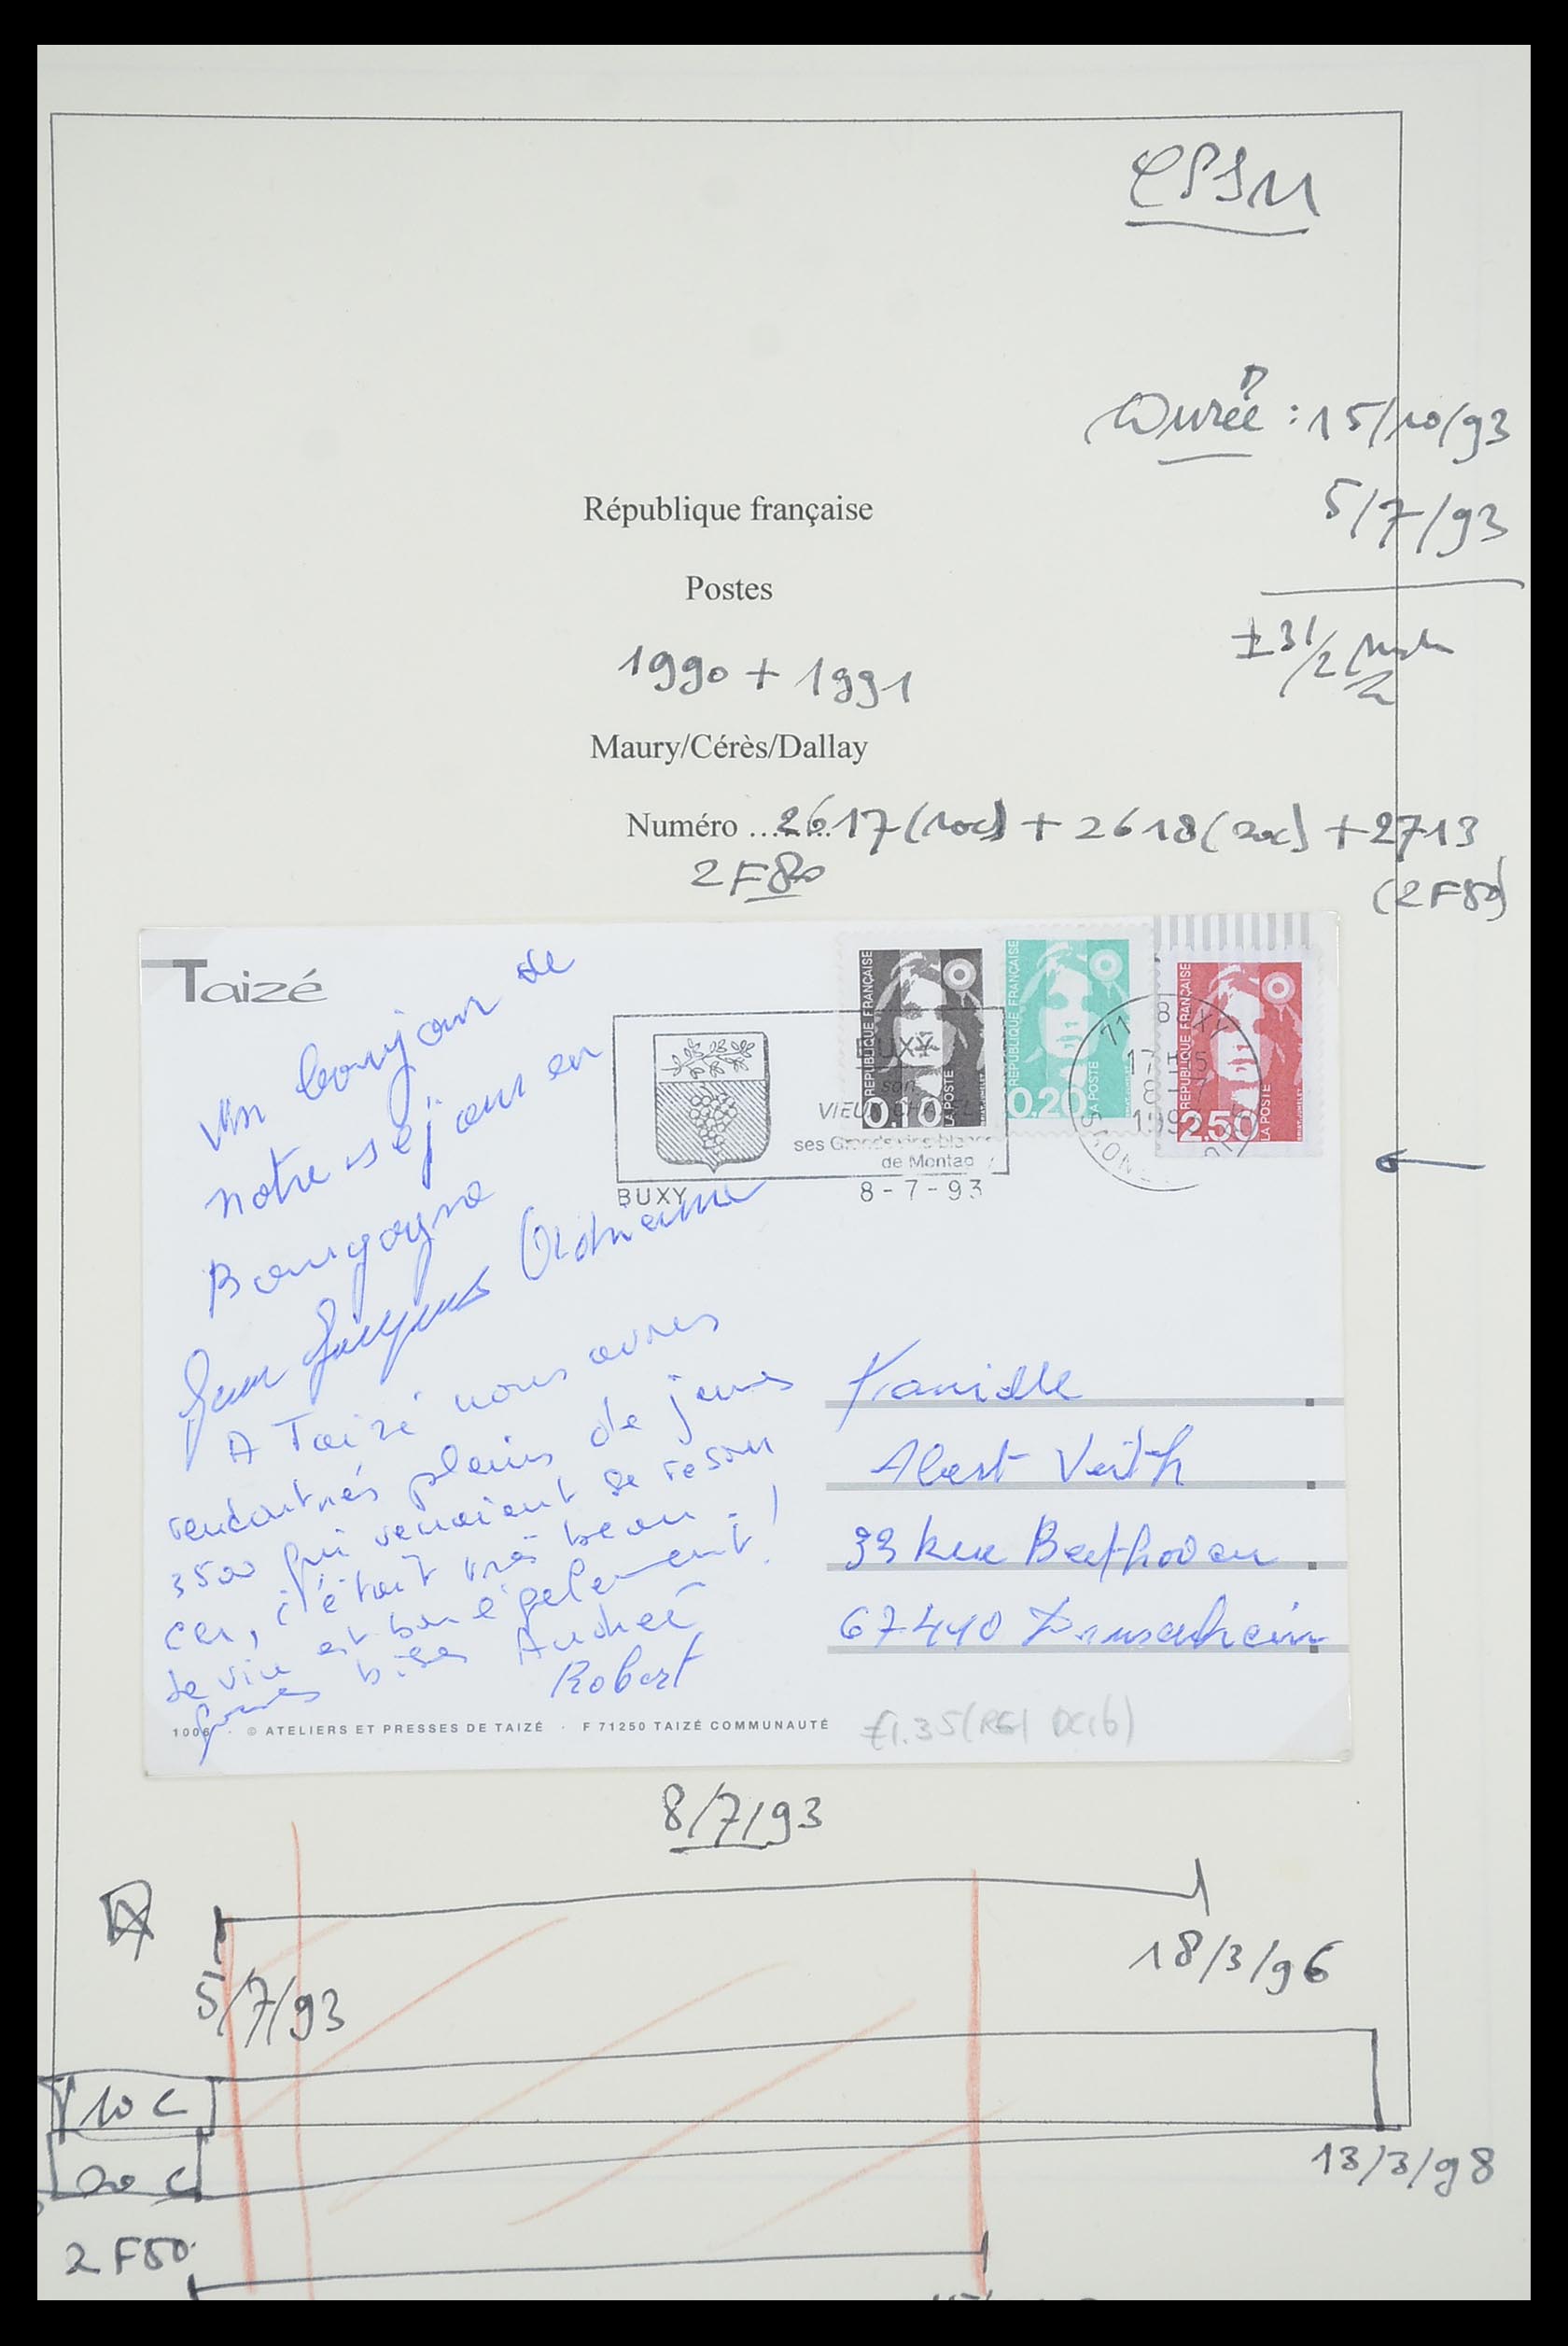 CPSM
Durée : 15/10/93
5/7/93
± 3 1/2
République française
Postes
1990 + 1991
Maury/Cérès/Dallay
Numéro ........ 2617 (10c) + 2618 (20c) + 2713
2F80
(2F50)
Taizé
Un bonjour de
notre séjour en
Bourgogne
Jean Jacques
A Taizé nous avons
rencontrés pleins de jeunes
3500 qui venaient se resour
cer, c'était très beau.
Le vin est bon également !
bises Andreé
Robert
REPUBLIQUE FRANÇAISE
0.10
LA POSTE
REPUBLIQUE FRANÇAISE
0.20
LA POSTE
REPUBLIQUE FRANÇAISE
2.50
LA POSTE
BUXY
son
VIEUX
ses Grands vins blancs
de Montag
BUXY
8-7-93
71 BUXY
17 H 15
8-7
1993
Famille
Albert Veith
33 Rue Beethoven
67440 Drusenheim
1006 · © ATELIERS ET PRESSES DE TAIZÉ · F 71250 TAIZÉ COMMUNAUTÉ
8/7/93
5/7/93
18/3/96
10 C
20 C
13/3/98
2 F50